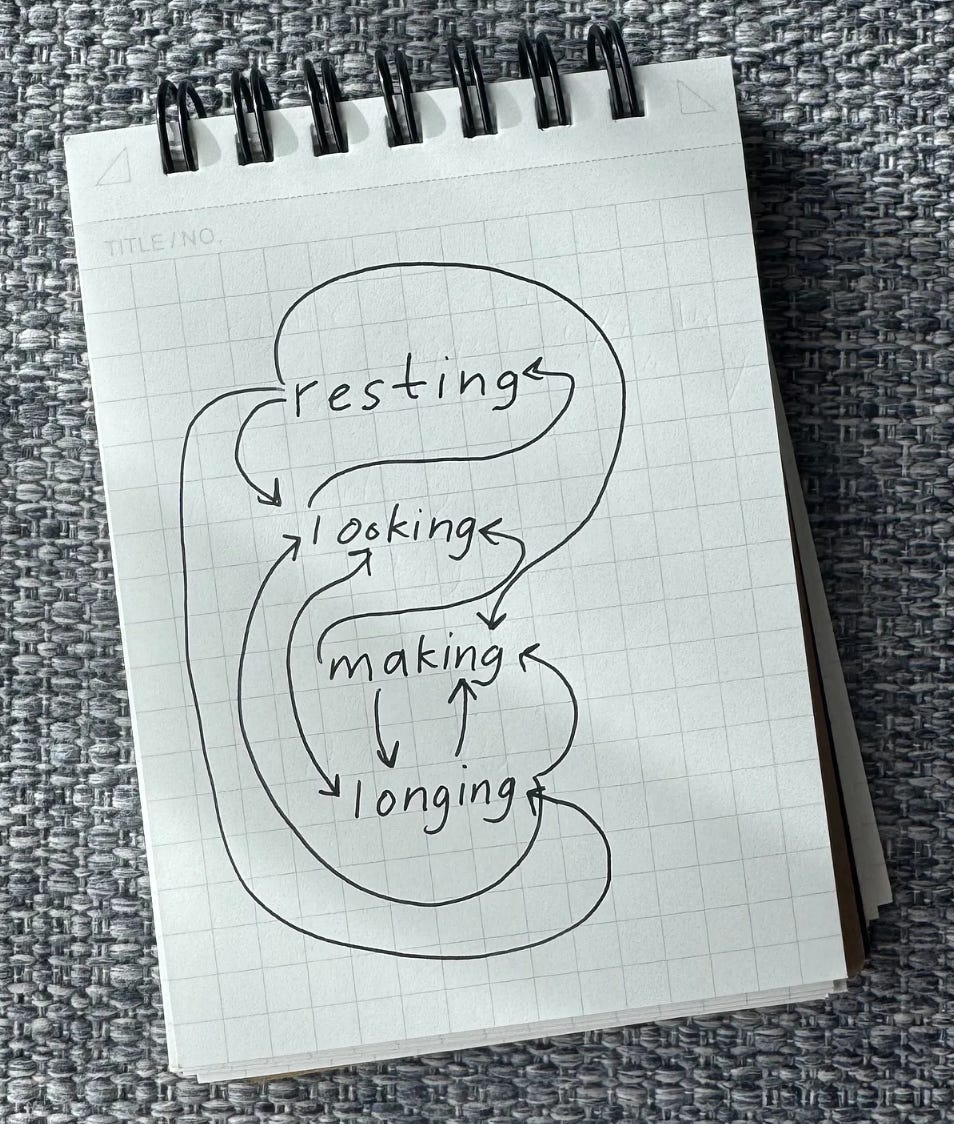 TITLE/NO.
resting
looking
making
longing